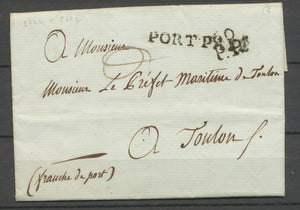 A Monsieur
PORT P.P.
Monsieur Le Préfet Maritime de Toulon
A Toulon
(franche de port)